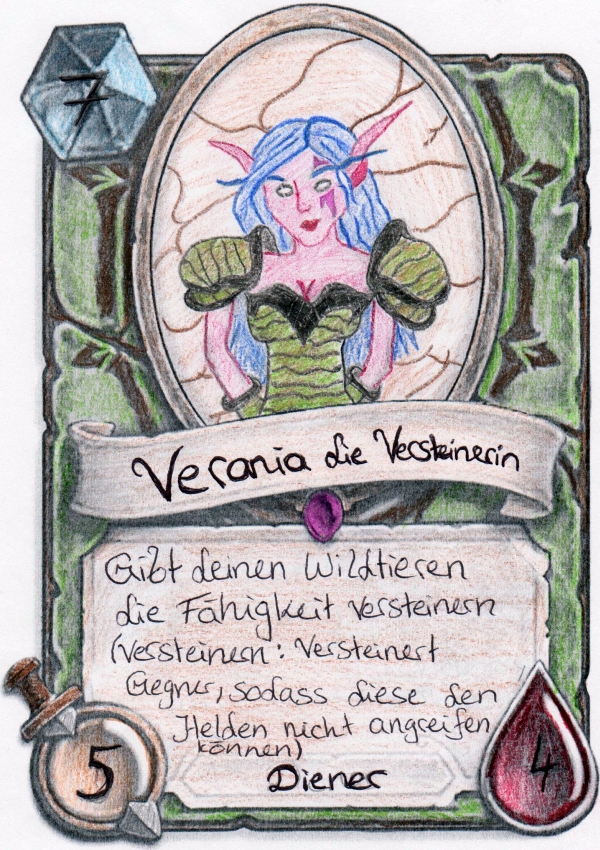 7
Verania die Versteinerin
Gibt deinen Wildtieren
die Fähigkeit versteinern
(Versteinern: Versteinert
Gegner, sodass diese den
Helden nicht angreifen
können)
Diener
5
4